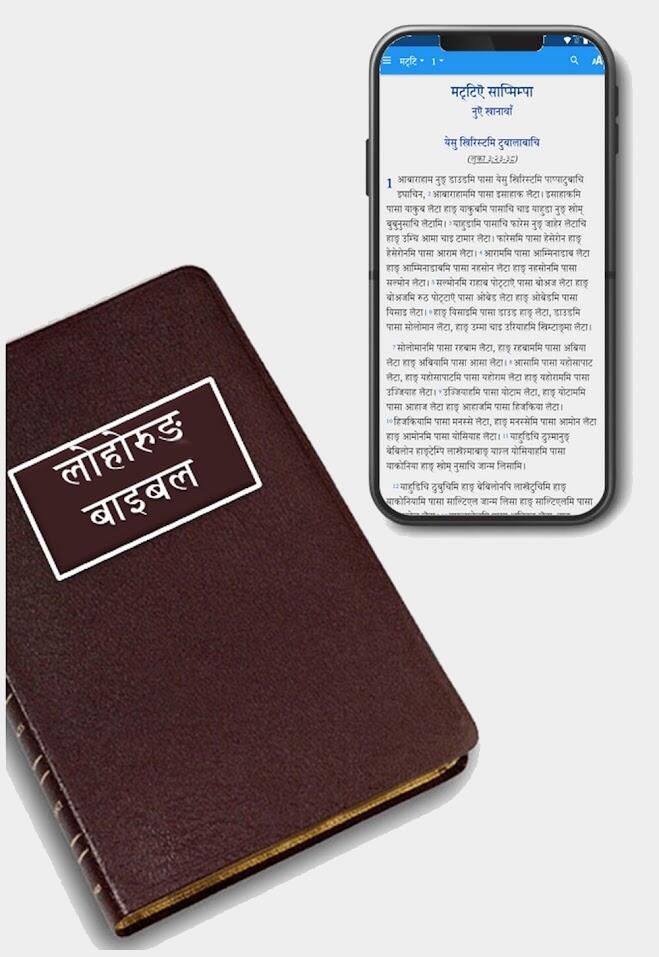 लोहोरुङ
बाइबल
मट्टि 1
मट्टिऐ साप्मिम्पा
नुऐ खानावाँ
येसु ख्रिरिस्टमि टुबालाबाचि
(लूका ३:२३-३८)
1 आबाराहाम नुङ् डाउडमि पासा येसु ख्रिरिस्टमि पाप्पाटुबाचि
इघाचिन, 2 आबाराहाममि पासा इसाहाक लॅटा। इसाहाकमि
पासा याकुब लॅटा हाङ् याकुबमि पासाचि चाइ याहुडा नुङ् खोम्
बुबुनुसाचि लॅटामि। 3 याहुडामि पासाचि फारेस नुङ् जाहेर लॅटाचि
हाङ् उम्चि आमा चाइ टामार लॅटा। फारेसमि पासा हेसेरोन हाङ्
हेसेरोनमि पासा आराम लॅटा। 4 आराममि पासा आम्मिनाडाब लॅटा
हाङ् आम्मिनाडाबमि पासा नहसोन लॅटा हाङ् नहसोनमि पासा
सल्मोन लॅटा। 5 सल्मोनमि राहाब पोट्टाऐ पासा बोअज लॅटा हाङ्
बोअजमि रुठ पोट्टाऐ पासा ओबेड लॅटा हाङ् ओबेडमि पासा
यिसाइ लॅटा। 6 हाङ् यिसाइमि पासा डाउड हाङ् लॅटा, डाउडमि
पासा सोलोमान लॅटा, हाङ् उम्मा चाइ उरियाहमि ख्रिम्टाङ्मा लॅटा।
7 सोलोमानमि पासा रहबाम लॅटा, हाङ् रहबाममि पासा अबिया
लॅटा हाङ् अबियामि पासा आसा लॅटा। 8 आसामि पासा यहोसापाट
लॅटा, हाङ् यहोसापाटमि पासा यहोराम लॅटा हाङ् यहोराममि पासा
उज्जियाह लॅटा। 9 उज्जियाहमि पासा योटाम लॅटा, हाङ् योटाममि
पासा आहाज लॅटा हाङ् आहाजमि पासा हिजकिया लॅटा।
10 हिजकियामि पासा मनस्से लॅटा, हाङ् मनस्सेमि पासा आमोन लॅटा
हाङ् आमोनमि पासा योसियाह लॅटा। 11 याहुडिचि डुश्मानुङ्
बेबिलोन हाङ्टेम्पि लाखेमाबाङ् याल्ल योसियाहमि पासा
याकोनिया हाङ् खोम् नुसाचि जान्म लिसामि।
12 याहुडिचि टुबुचिमि हाङ् बेबिलोनपि लाखेटुचिमि हाङ्
याकोनियामि पासा साल्टिएल जान्म लिसा हाङ् साल्टिएलमि पासा